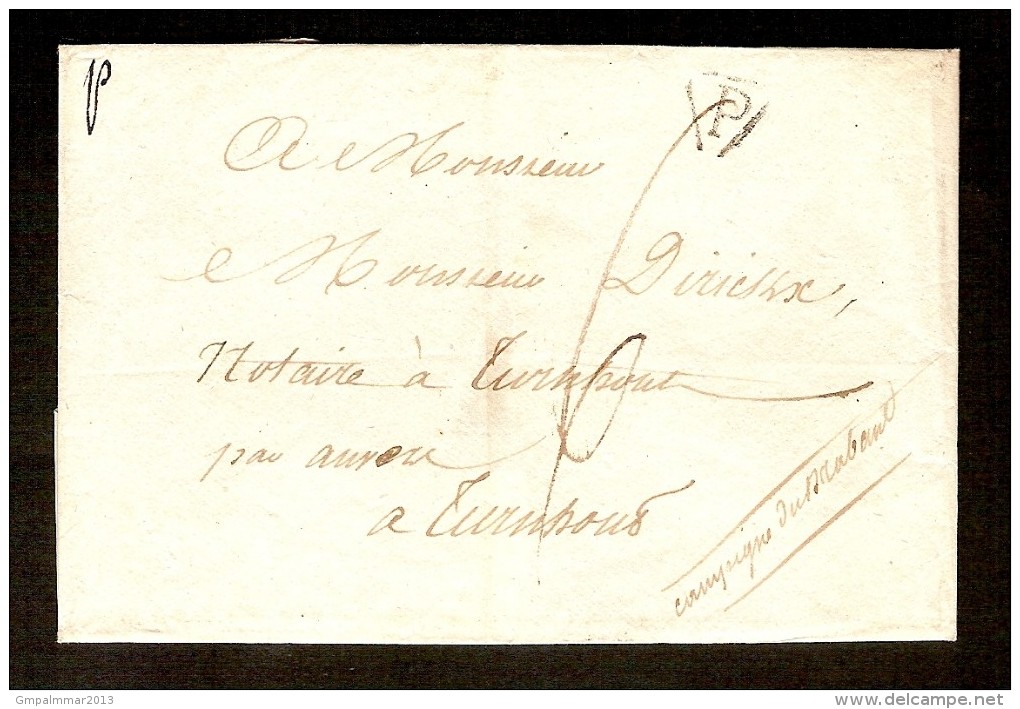 P
P
A Monsieur
Monsieur Dirickx,
Notaire à Turnhout
par anvers
a Turnhout
campigne du Brabant
Gmpalmmar2013
www.delcampe.net